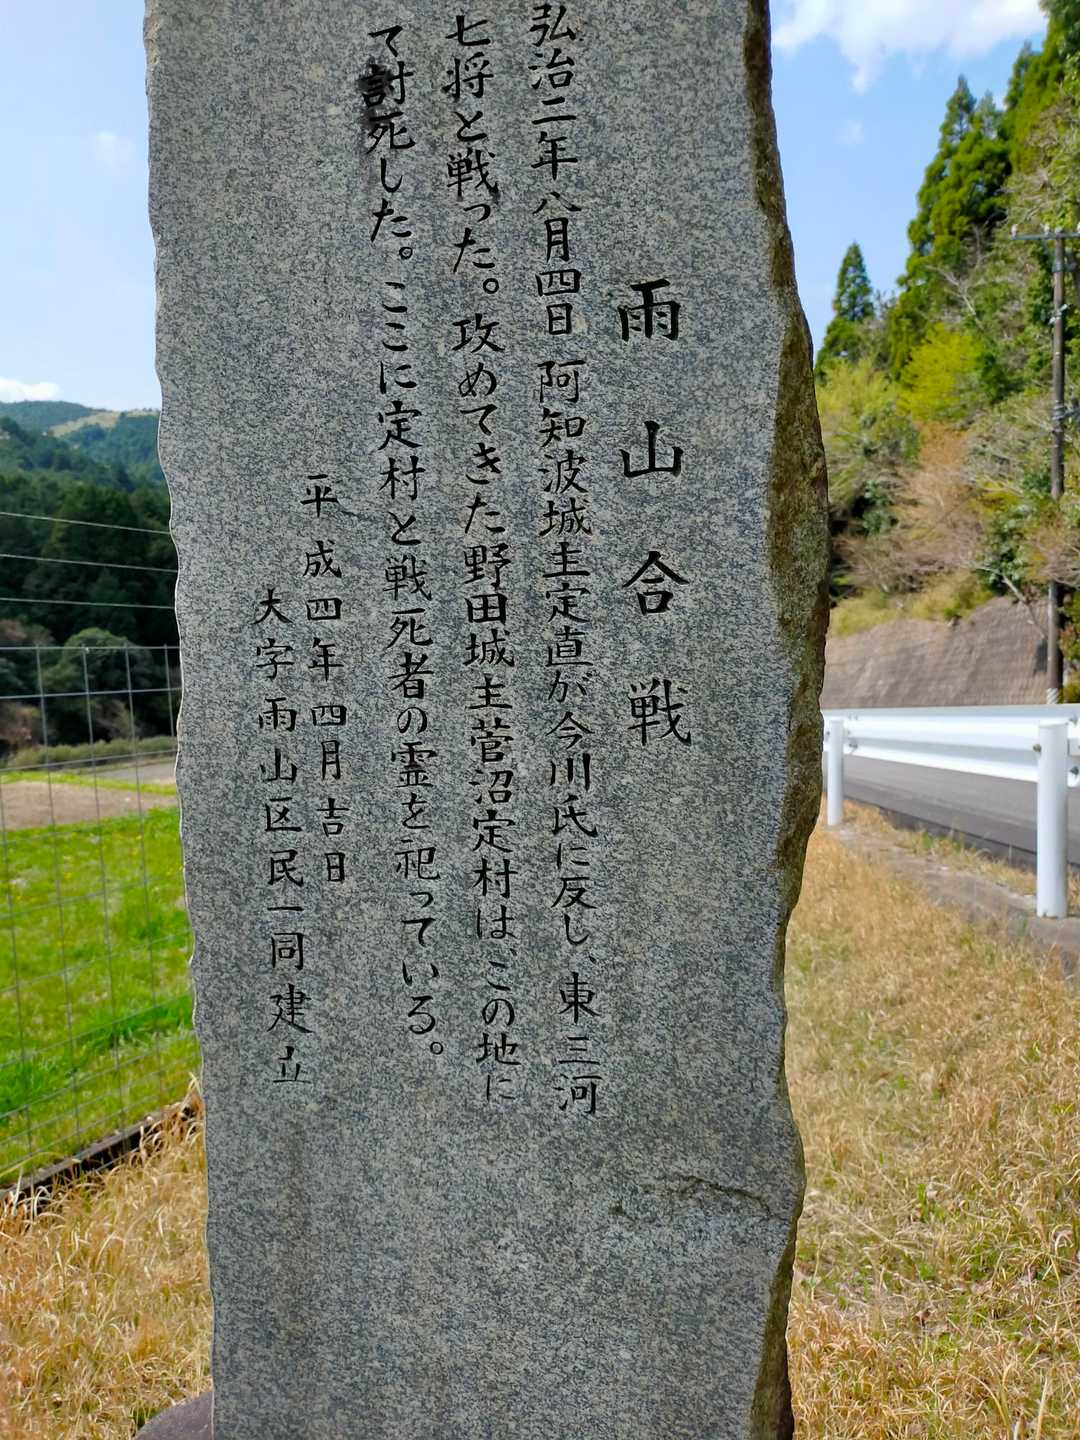 雨山合戦
弘治二年八月四日阿知波城主定直が今川氏に反し、東三河
七将と戦った。攻めてきた野田城主菅沼定村は、この地に
て討死した。ここに定村と戦死者の霊を祀っている。
平成四年四月吉日
大字雨山区民一同建立